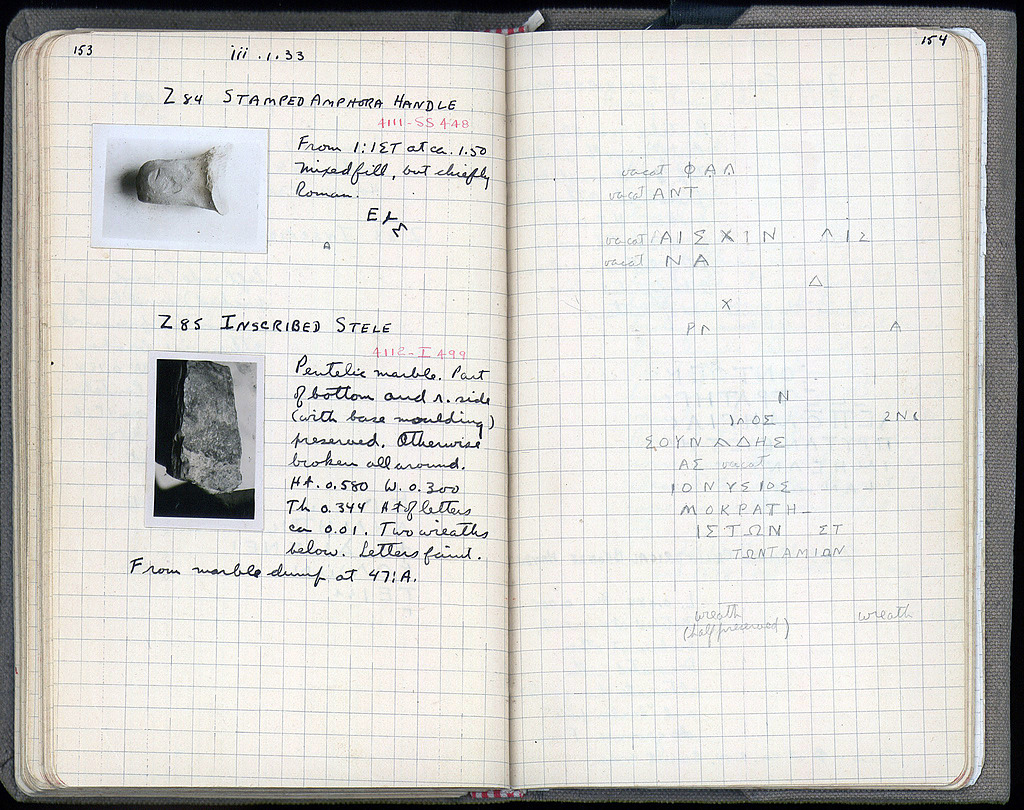 153
iii.1.33
Z 84 STAMPED AMPHORA HANDLE
4111-SS 448
From 1:1ΣT at ca. 1.50
mixed fill, but chiefly
Roman.
A
Z 85 INSCRIBED STELE
4112-I 499
Pentelic marble. Part
of bottom and r. side
(with base moulding)
preserved. Otherwise
broken all around.
Ht. 0.580 W. 0.300
Th 0.344 Ht of letters
ca 0.01. Two wreaths
below. Letters faint.
From marble dump at 47:A.
154
vacat ΦΑΛ
vacat ΑΝΤ
vacat ΑΙΣΧΙΝ ΛΙΣ
vacat ΝΑ
Δ
Χ
Α
Ν
ΙΛΟΣ
ΣΟΥΝΙΑΔΗΣ
ΑΣ vacat
ΙΟΝΥΣΙΟΣ
ΜΟΚΡΑΤΗ
ΙΣΤΩΝ ΣΤ
ΤΩΝΤΑΜΙΩΝ
wreath wreath
(half preserved)